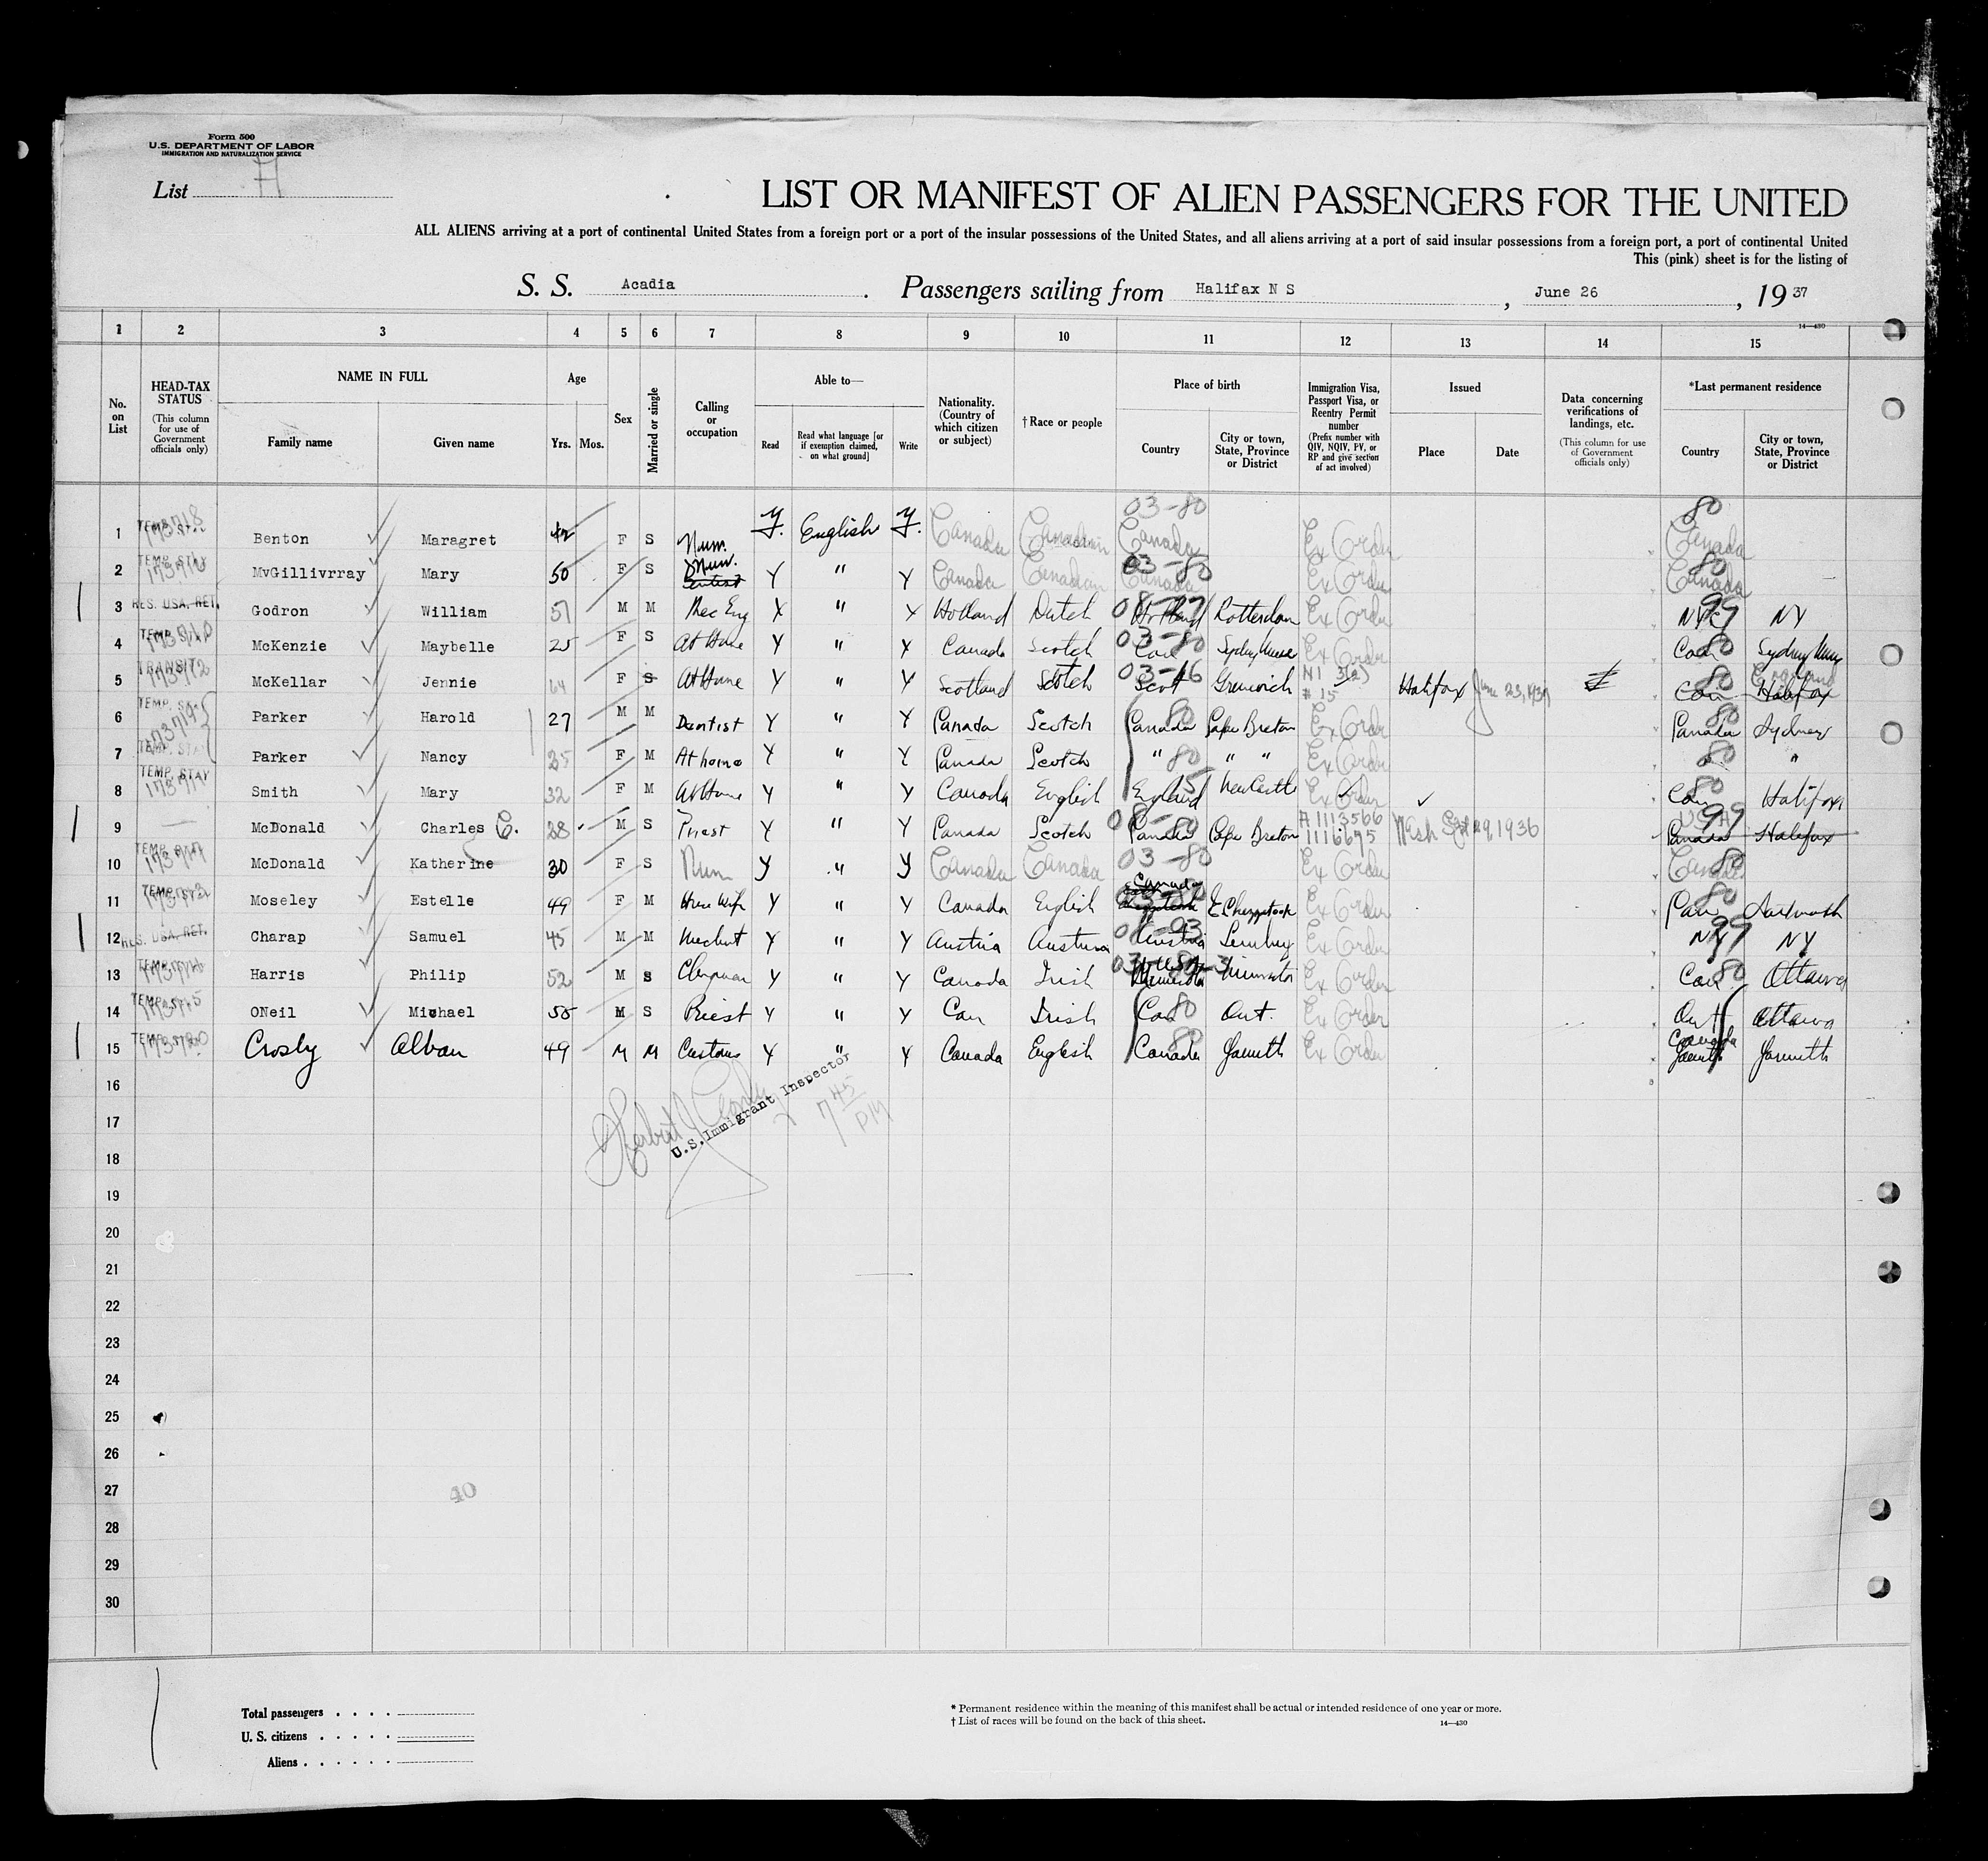 Form 500
U.S. DEPARTMENT OF LABOR
IMMIGRATION AND NATURALIZATION SERVICE
List A
LIST OR MANIFEST OF ALIEN PASSENGERS FOR THE UNITED
ALL ALIENS arriving at a port of continental United States from a foreign port or a port of the insular possessions of the United States, and all aliens arriving at a port of said insular possessions from a foreign port, a port of continental United
This (pink) sheet is for the listing of
S. S. Acadia. Passengers sailing from Halifax N S, June 26, 1937
14—430
1 2 3 4 5 6 7 8 9 10 11 12 13 14 15
No. on List
HEAD-TAX STATUS
(This column for use of Government officials only)
NAME IN FULL
Family name Given name
Age
Yrs. Mos.
Sex
Married or single
Calling or occupation
Able to—
Read
Read what language [or if exemption claimed, on what ground]
Write
Nationality. (Country of which citizen or subject)
† Race or people
Place of birth
Country
City or town, State, Province or District
Immigration Visa, Passport Visa, or Reentry Permit number
(Prefix number with QIV, NQIV, PV, or RP and give section of act involved)
Issued
Place Date
Data concerning verifications of landings, etc.
(This column for use of Government officials only)
*Last permanent residence
Country
City or town, State, Province or District
1 TEMP. STAY Benton Maragret 42 F S Nun. Y. English Y. Canada Canadian 03-80 Canada Ex Order 80 Canada
2 TEMP. STAY MvGillivrray Mary 50 F S Nun. Y " Y Canada Canadian 03-80 Canada Ex Order 80 Canada
3 RES. USA. RET. Godron William 51 M M Y " Y Holland Dutch Holland Rotterdam Ex Order 99 NY NY
4 TEMP. STAY McKenzie Maybelle 25 F S At Home Y " Y Canada Scotch 03-80 Can Sydney Ex Order Can 80 Sydney
5 TRANSIT McKellar Jennie 64 F S At Home Y " Y Scotland Scotch 03-16 Scot Greenwich # 15 Halifax June 23, 1937 80 Can Halifax
6 TEMP. STAY Parker Harold 27 M M Dentist Y " Y Canada Scotch 80 Canada Cape Breton Ex Order 80 Canada Sydney
7 TEMP. STAY Parker Nancy 25 F M At home Y " Y Canada Scotch " 80 " " Ex Order 80 "
8 TEMP. STAY Smith Mary 32 F M At Home Y " Y Canada English England New Castle Ex Order 80 Can Halifax
9 McDonald Charles C. 28 M S Priest Y " Y Canada Scotch Canada Cape Breton 1113566 1116695 Wash 29, 1936 99 USA Canada Halifax
10 McDonald Katherine 30 F S Nun Y " Y Canada Canada 03-80 Ex Order Canada 80
11 Moseley Estelle 49 F M House Wife Y " Y Canada English Canada Ex Order 80 Can Dartmouth
12 RES. USA. RET. Charap Samuel 45 M M Y " Y Austria Austrian Austria Ex Order 99 NY NY
13 Harris Philip 52 M S Clergyman Y " Y Canada Irish Ex Order Can 80 Ottawa
14 ONeil Michael 58 M S Priest Y " Y Can Irish Can 80 Ont. Ex Order Ont Ottawa
15 Crosby Alban 49 M M Customs Y " Y Canada English Canada 80 Yarmouth Ex Order Canada Yarmouth
16
U.S. Immigrant Inspector
7 45 PM
17
18
19
20
21
22
23
24
25
26
27
40
28
29
30
Total passengers
U. S. citizens
Aliens
* Permanent residence within the meaning of this manifest shall be actual or intended residence of one year or more.
† List of races will be found on the back of this sheet.
14—430